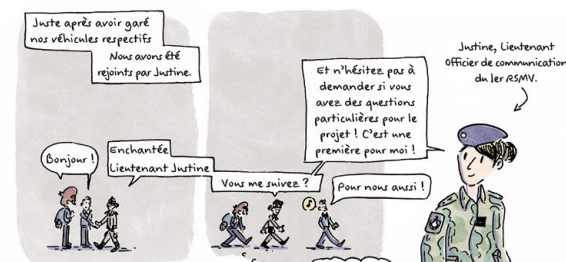 Juste après avoir garé
nos véhicules respectifs
Nous avons été
rejoints par Justine.
Bonjour !
Enchantée
Lieutenant Justine
Vous me suivez ?
Et n'hésitez pas à
demander si vous
avez des questions
particulières pour le
projet ! C'est une
première pour moi !
Pour nous aussi !
Justine, Lieutenant
Officier de communication
du 1er RSMV.